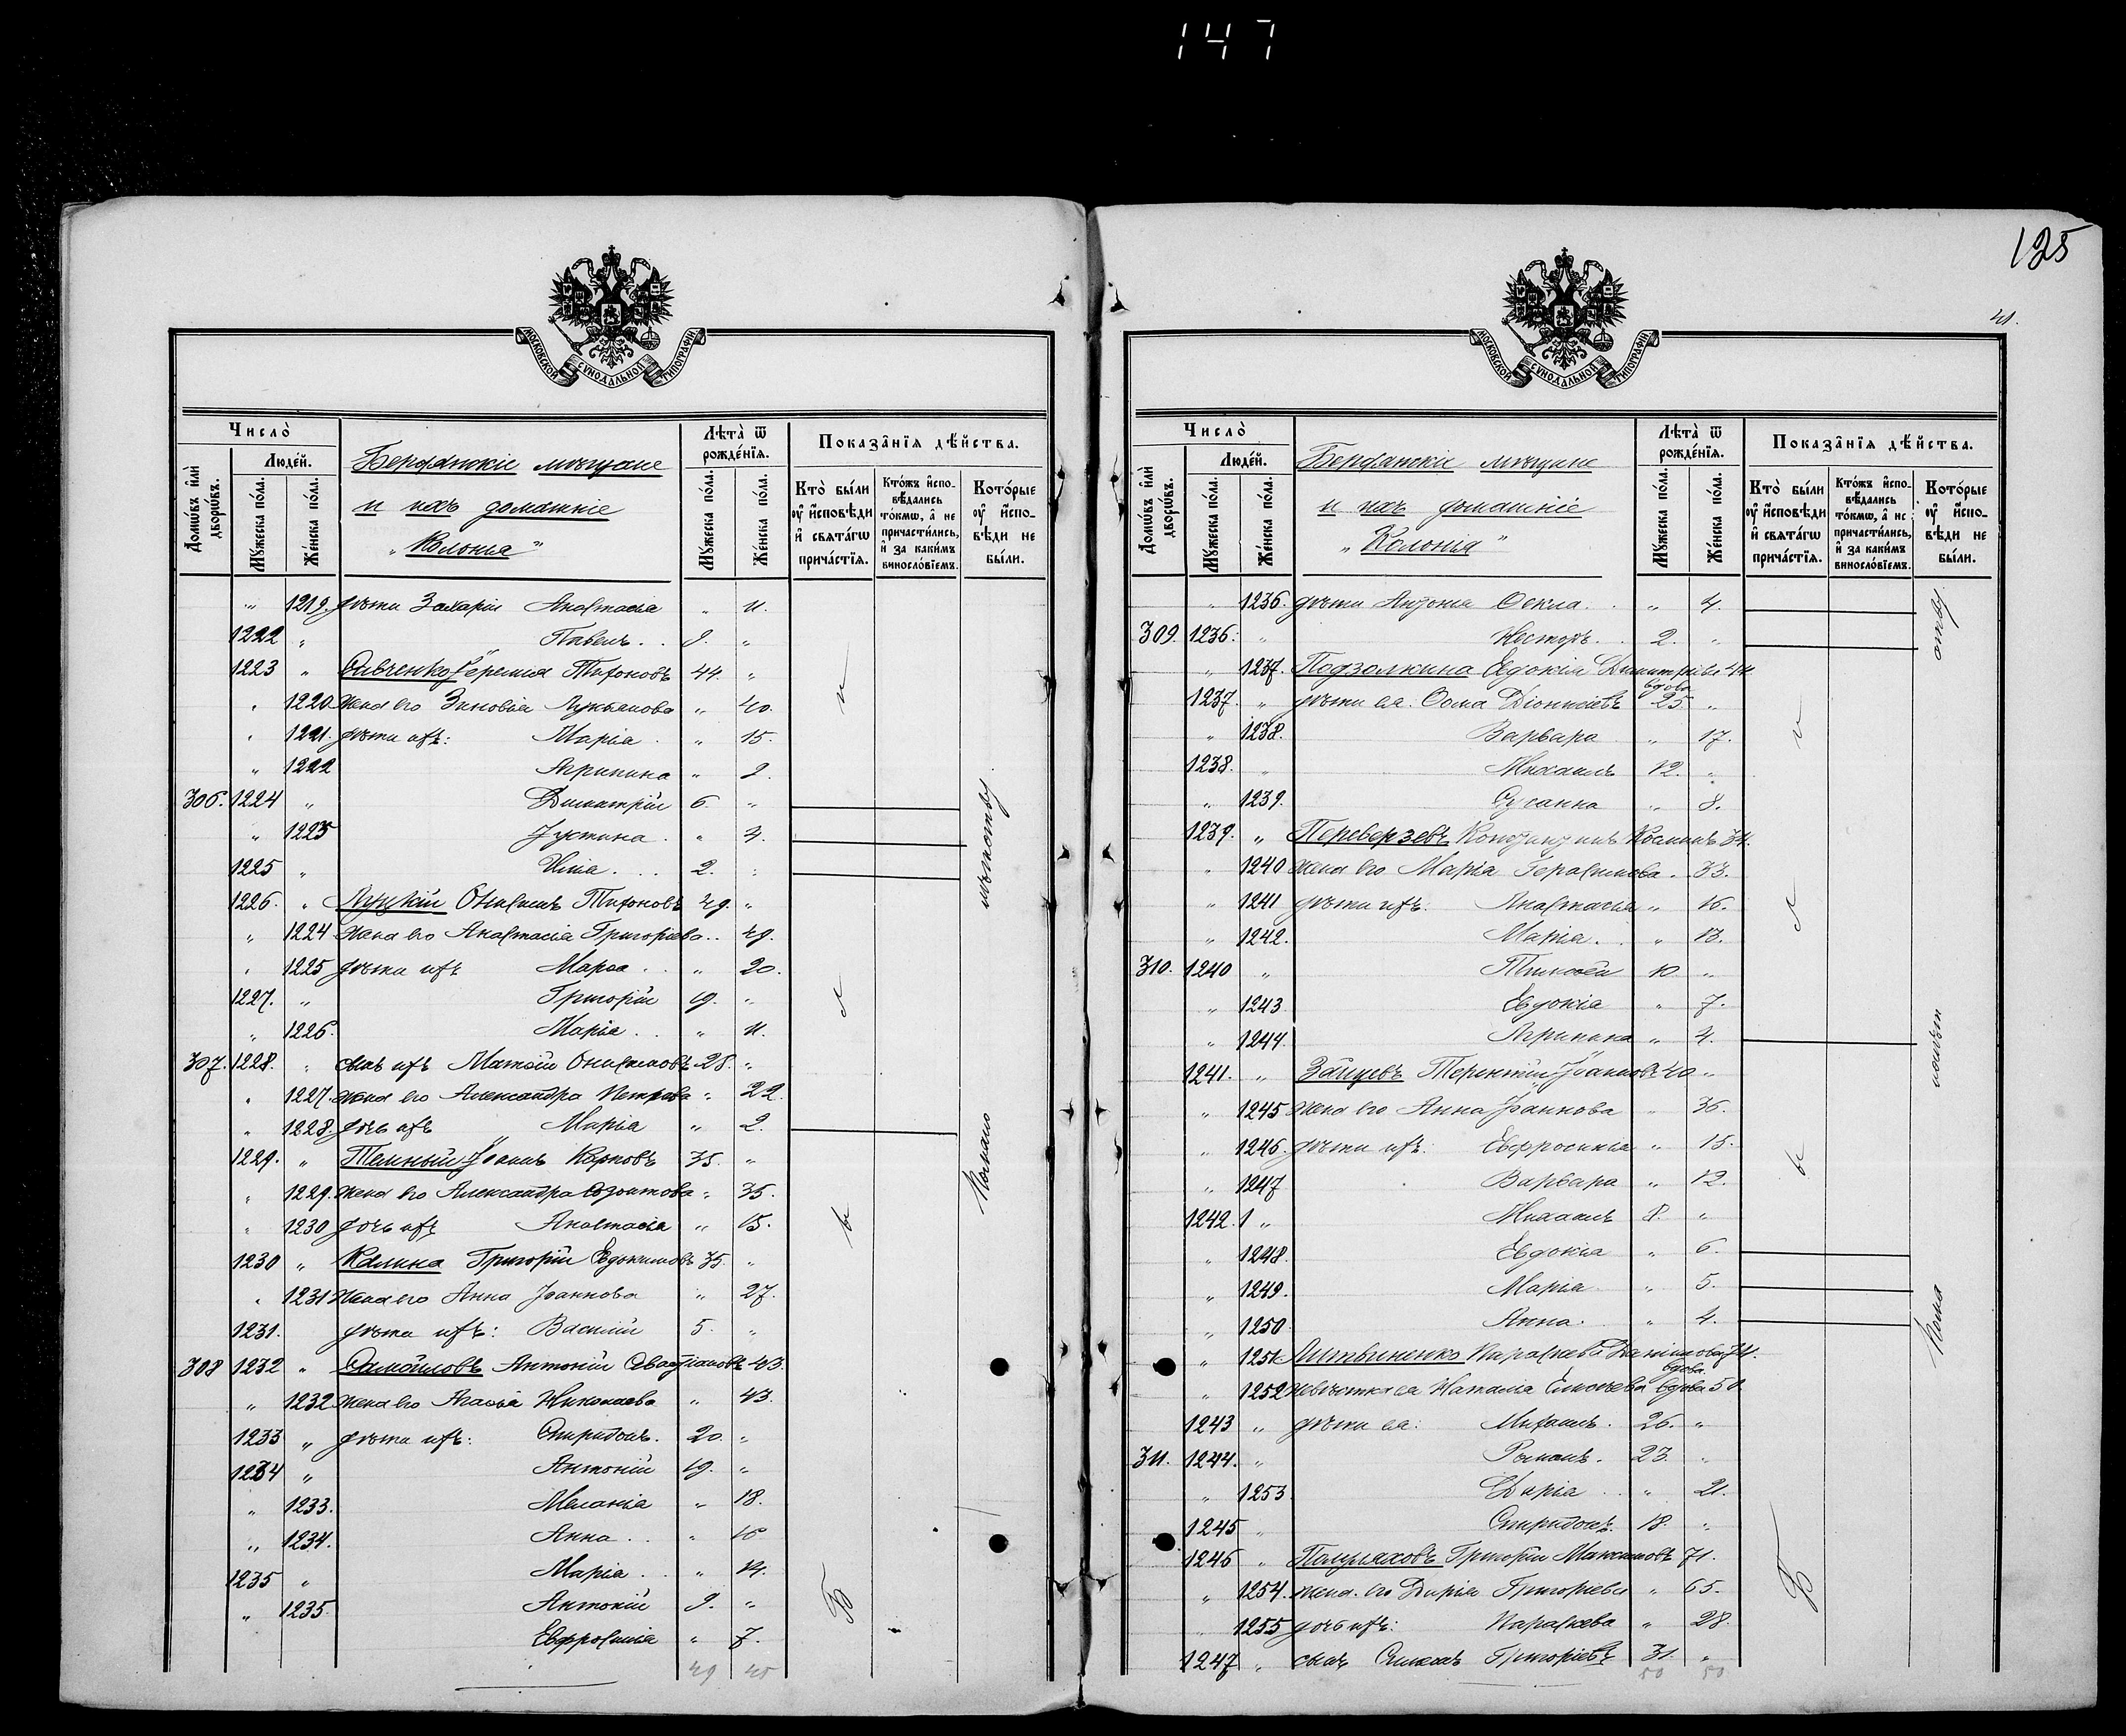 147
125
41.
МОСКОВСКОЙ СѴНОДАЛЬНОЙ ТИПОГРАФІИ
Число̀
Домѡ́въ и҆лѝ дворѡ́въ.
Люде́й.
Мꙋ́жеска по́ла.
Же́нска по́ла.
Бердянскіе мѣщане
и ихъ домашніе
„Колонія“
Лѣ́та ѿ рожде́нїѧ.
Мꙋ́жеска по́ла.
Же́нска по́ла.
Показа̑нїѧ дѣ́йства.
Кто̀ бы́ли ᲂу҆ и҆сповѣ́ди и҆ свѧта́гѡ прича́стїѧ.
Кто́жъ и҆сповѣ́дались то́кмѡ, а҆ не причасти́лись, и҆ за каки́мъ винослове́мъ.
Кото́рые ᲂу҆ и҆сповѣ́ди не бы́ли.
„ 1219. дѣти Захаріи Анастасія „ 11.
1222 „ Павелъ . . 9. „
1223 „ Савченко Іеремія Тихоновъ 44. „
„ 1220 жена его Зиновія Лукьянова „ 40.
„ 1221. дѣти ихъ: Марія . „ 15.
„ 1222 Агрипина „ 9.
306. 1224 „ Димитрій 6. „
„ 1223 Іустина . „ 4.
1225 „ Илія . . . 2. „
1226. „ Луцкій Онисимъ Тихоновъ 49. „
„ 1224 жена его Анастасія Григоріева . „ 49.
„ 1225 дѣти ихъ Марѳа . . „ 20.
1227. „ Григорій 19. „
„ 1226. Марія . . „ 11.
307. 1228. „ сынъ ихъ Матѳій Онисимовъ 28. „
„ 1227. жена его Александра Петрова „ 22.
„ 1228. дочь ихъ Марія „ 2.
1229. „ Темный Іоаннъ Карповъ 35. „
„ 1229. жена его Александра Созонтова „ 35.
„ 1230 дочь ихъ Анастасія „ 15.
1230 „ Калина Григорій Евдокимовъ 35. „
„ 1231 жена его Анна Іоаннова „ 27.
1231. дѣти ихъ: Василій 5. „
308 1232 „ Самойловъ Антоній Севастіановъ 43.
„ 1232. жена его Агаѳія Николаева „ 43.
1233 „ дѣти ихъ: Спиридонъ. 20. „
1234 „ Антоній 19. „
„ 1233. Меланія „ 18.
„ 1234. Анна . . „ 16
1235 „ Марія . . „ 14.
„ 1235. Антоній 9. „
Евфросинія „ 7.
49 45
и
с
ѣ
Б
малолѣтству
МОСКОВСКОЙ СѴНОДАЛЬНОЙ ТИПОГРАФІИ
Число̀
Домѡ́въ и҆лѝ дворѡ́въ.
Люде́й.
Мꙋ́жеска по́ла.
Же́нска по́ла.
Бердянскіе мѣщане
и ихъ домашніе
„Колонія“
Лѣ́та ѿ рожде́нїѧ.
Мꙋ́жеска по́ла.
Же́нска по́ла.
Показа̑нїѧ дѣ́йства.
Кто̀ бы́ли ᲂу҆ и҆сповѣ́ди и҆ свѧта́гѡ прича́стїѧ.
Кто́жъ и҆сповѣ́дались то́кмѡ, а҆ не причасти́лись, и҆ за каки́мъ винослове́мъ.
Кото́рые ᲂу҆ и҆сповѣ́ди не бы́ли.
„ 1236. дѣти Антонія Ѳекла . . „ 4.
309. 1236. „ Несторъ . . 2. „
„ 1237. Подзолкина Евдокія Димитріева 44.
вдова
1237. „ дѣти ея: Ѳома Діонисіевъ 25. „
„ 1238. Варвара „ 17.
1238. „ Михаилъ 12. „
„ 1239. Сусанна „ 8.
1239. „ Переверзевъ Константинъ Косминъ 34.
„ 1240 жена его Марія Герасимова . 33.
„ 1241 дѣти ихъ. Анастасія „ 16.
„ 1242. Марія . . „ 13.
310. 1240 „ Тимоѳей 10 „
„ 1243 Евдокія „ 7.
„ 1244. Агрипина „ 4.
1241. „ Зайцевъ Терентій Іоанновъ 40 „
„ 1245 жена его Анна Іоаннова „ 36.
„ 1246. дѣти ихъ: Евфросинія „ 15.
„ 1247 Варвара „ 12.
1242. „ Михаилъ 8. „
„ 1248. Евдокія „ 6.
„ 1249. Марія „ 5.
„ 1250. Анна. „ 4.
„ 1251 Литвиненко Параскева Данилова 74.
вдова
„ 1252 невѣстка ея Наталія Елисеева вдова 50.
1243 „ дѣти ея: Михаилъ . 26. „
311. 1244. „ Романъ . 23. „
„ 1253. Дарія . . „ 21.
1245 „ Спиридонъ. 18. „
1246 „ Григорій Максимовъ 71.
„ 1254. жена его Дарія Григоріева „ 65.
1255 дочь ихъ: Параскева „ 28.
1247 „ сынъ Симеонъ Григоріевъ 31. „
50 50
и
с
ѣ
Б